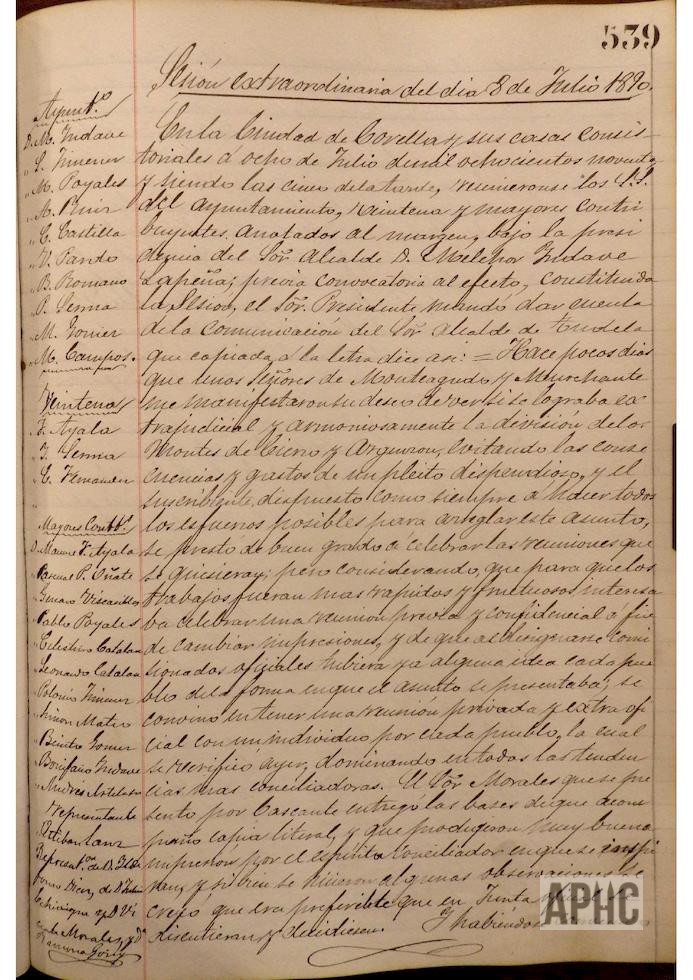 539
Sesión extraordinaria del dia 8 de Julio 1890.
Ayunt.º
D. M. Yndave
" S. Jimenez
" M. Poyales
" A. Ruiz
" C. Castilla
" V. Pardo
" B. Romano
" P. Serna
" M. Gomez
" M. Campos.
Veintena
" F. Ayala
" J. Serna
" C. Fernandez
Mayores Contb.s
D. Manuel F. Ayala
Pascual P. Oñate
Genaro Viscasillas
Pablo Poyales
Celestino Catalan
Leonardo Catalan
Polonio Jimenez
Simon Mateo
Benito Gomez
Bonifacio Yndave
Andres Arteta
representante
Esteban Sanz
Represent.on de D.
de D.
y D. Vi
Morales, y D.ª
Ramona
En la Ciudad de Corella y sus casas consis-
toriales á ocho de Julio de mil ochocientos noventa
y siendo las cinco de la tarde, reunieronse los S.S.
del Ayuntamiento, Veintena y mayores contri
buyentes anotados al margen, bajo la presi
dencia del Sor. Alcalde D. Melchor Yndave
Lapeña; previa convocatoria al efecto, constituida
la Sesion, el Sor. Presidente mandó dar cuenta
de la comunicacion del Sor. Alcalde de Tudela
que copiada á la letra dice asi: = Hace pocos dias
que unos Señores de Monteagudo y Murchante
me manifestaron su deseo de ver si se lograba ex
trajudicial y armoniosamente la división de los
Montes de Cierzo y Argenzon, evitando las conse
cuencias y gastos de un pleito dispendioso, y el
suscribiente, dispuesto como siempre a hacer todos
los esfuerzos posibles para arreglar este asunto,
se prestó de buen grado á celebrar las reuniones que
se quisieran; pero considerando, que para que los
trabajos fueran mas rapidos y fructuosos interesa
ba celebrar una reunion previa y confidencial á fin
de cambiar impresiones, y de que al designarse comi
sionados oficiales hubiera ya alguna idea cada pue
blo de la forma en que el asunto se presentaba; se
convino en tener una reunión privada y extra ofi
cial con un individuo por cada pueblo, la cual
se verificó ayer, dominando en todos las tenden
cias mas conciliadoras. El Sor. Morales que se pre
sento por Cascante entregó las bases de que acom
paño copia literal, y que produgeron muy buena
impresion por el espiritu conciliador en que se inspi
ran, y si bien se hicieron algunas observaciones se
creyó que era preferible que en Junta
discutieran y decidiesen. Y habiendo
APHC